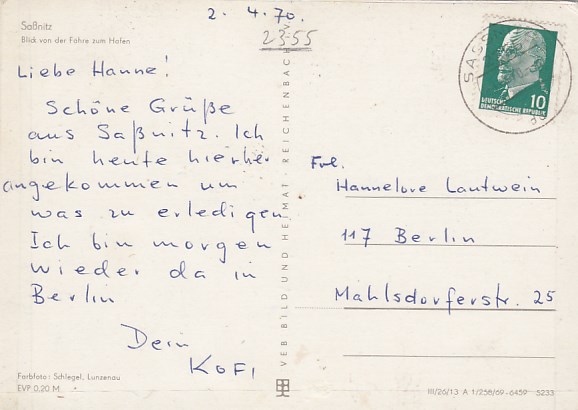 2. 4. 70.
23-55
Saßnitz
Blick von der Fähre zum Hafen
Liebe Hanne!
Schöne Grüße
aus Saßnitz. Ich
bin heute hierher
angekommen um
was zu erledigen
Ich bin morgen
wieder da in
Berlin
Dein
KOFI
Farbfoto: Schlegel, Lunzenau
EVP 0,20 M
VEB BILD UND HEIMAT REICHENBACH i. V.
SASS
DEUTSCHE
DEMOKRATISCHE REPUBLIK
10
Frl.
Hannelore Lautwein
117 Berlin
Mahlsdorferstr. 25
III/26/13 A 1/258/69-6459 5233